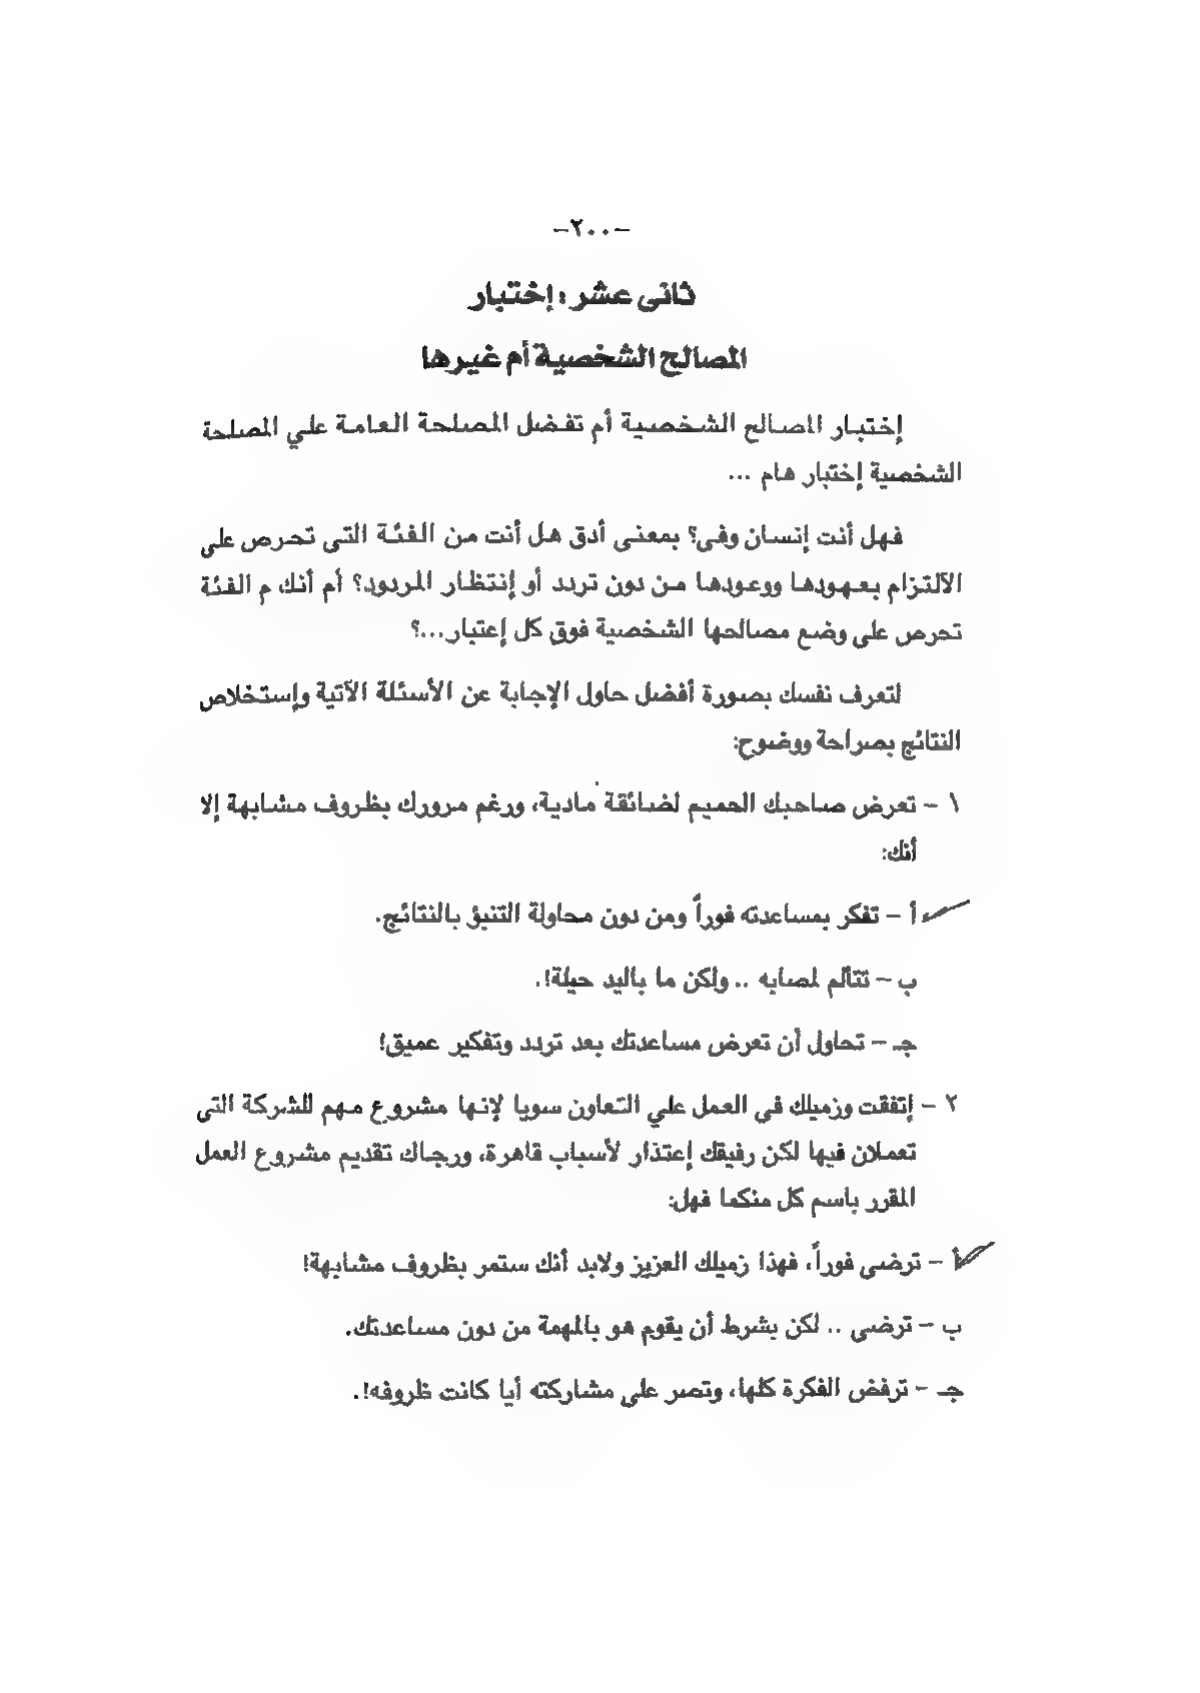 -٢٠٠-
ثانى عشر : إختبار
المصالح الشخصية أم غيرها
إختبار المصالح الشخصية أم تفضل المصلحة العامة علي المصلحة
الشخصية إختبار هام ...
فهل أنت إنسان وفى؟ بمعنى أدق هل أنت من الفئة التى تحرص على
الآلتزام بعهودها ووعودها من دون تردد أو إنتظار المردود؟ أم أنك م الفئة
تحرص على وضع مصالحها الشخصية فوق كل إعتبار...؟
لتعرف نفسك بصورة أفضل حاول الإجابة عن الأسئلة الآتية وإستخلاص
النتائج بصراحة ووضوح:
١ - تعرض صاحبك الحميم لضائقة مادية، ورغم مرورك بظروف مشابهة إلا
أنك:
أ - تفكر بمساعدته فوراً ومن دون محاولة التنبؤ بالنتائج.
ب - تتألم لمصابه .. ولكن ما باليد حيلة!.
جـ - تحاول أن تعرض مساعدتك بعد تردد وتفكير عميق!
٢ - إتفقت وزميلك في العمل علي التعاون سويا لإنها مشروع مهم للشركة التى
تعملان فيها لكن رفيقك إعتذار لأسباب قاهرة، ورجاك تقديم مشروع العمل
المقرر باسم كل منكما فهل:
أ - ترضى فوراً، فهذا زميلك العزيز ولابد أنك ستمر بظروف مشابهة!
ب - ترضى .. لكن بشرط أن يقوم هو بالمهمة من دون مساعدتك.
جـ - ترفض الفكرة كلها، وتصر على مشاركته أيا كانت ظروفه!.